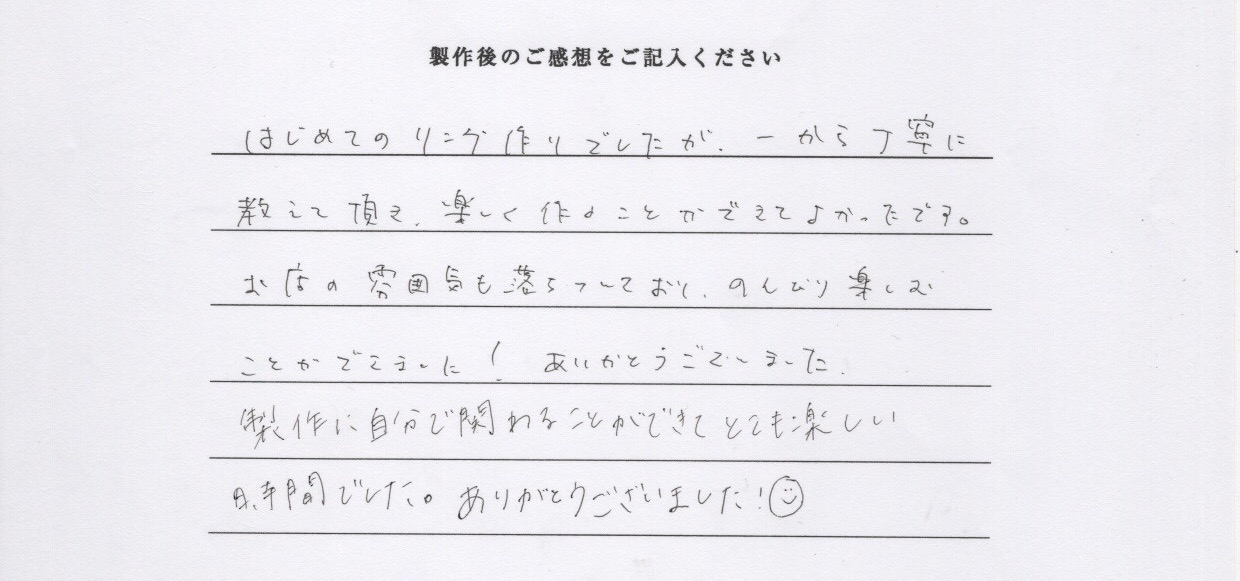 製作後のご感想をご記入ください
はじめてのリング作りでしたが、一から丁寧に
教えて頂き、楽しく作ることができてよかったです。
お店の雰囲気も落ちついており、のんびり楽しむ
ことができました！ ありがとうございました.
製作に自分で関わることができてとても楽しい
時間でした。ありがとうございました！☺